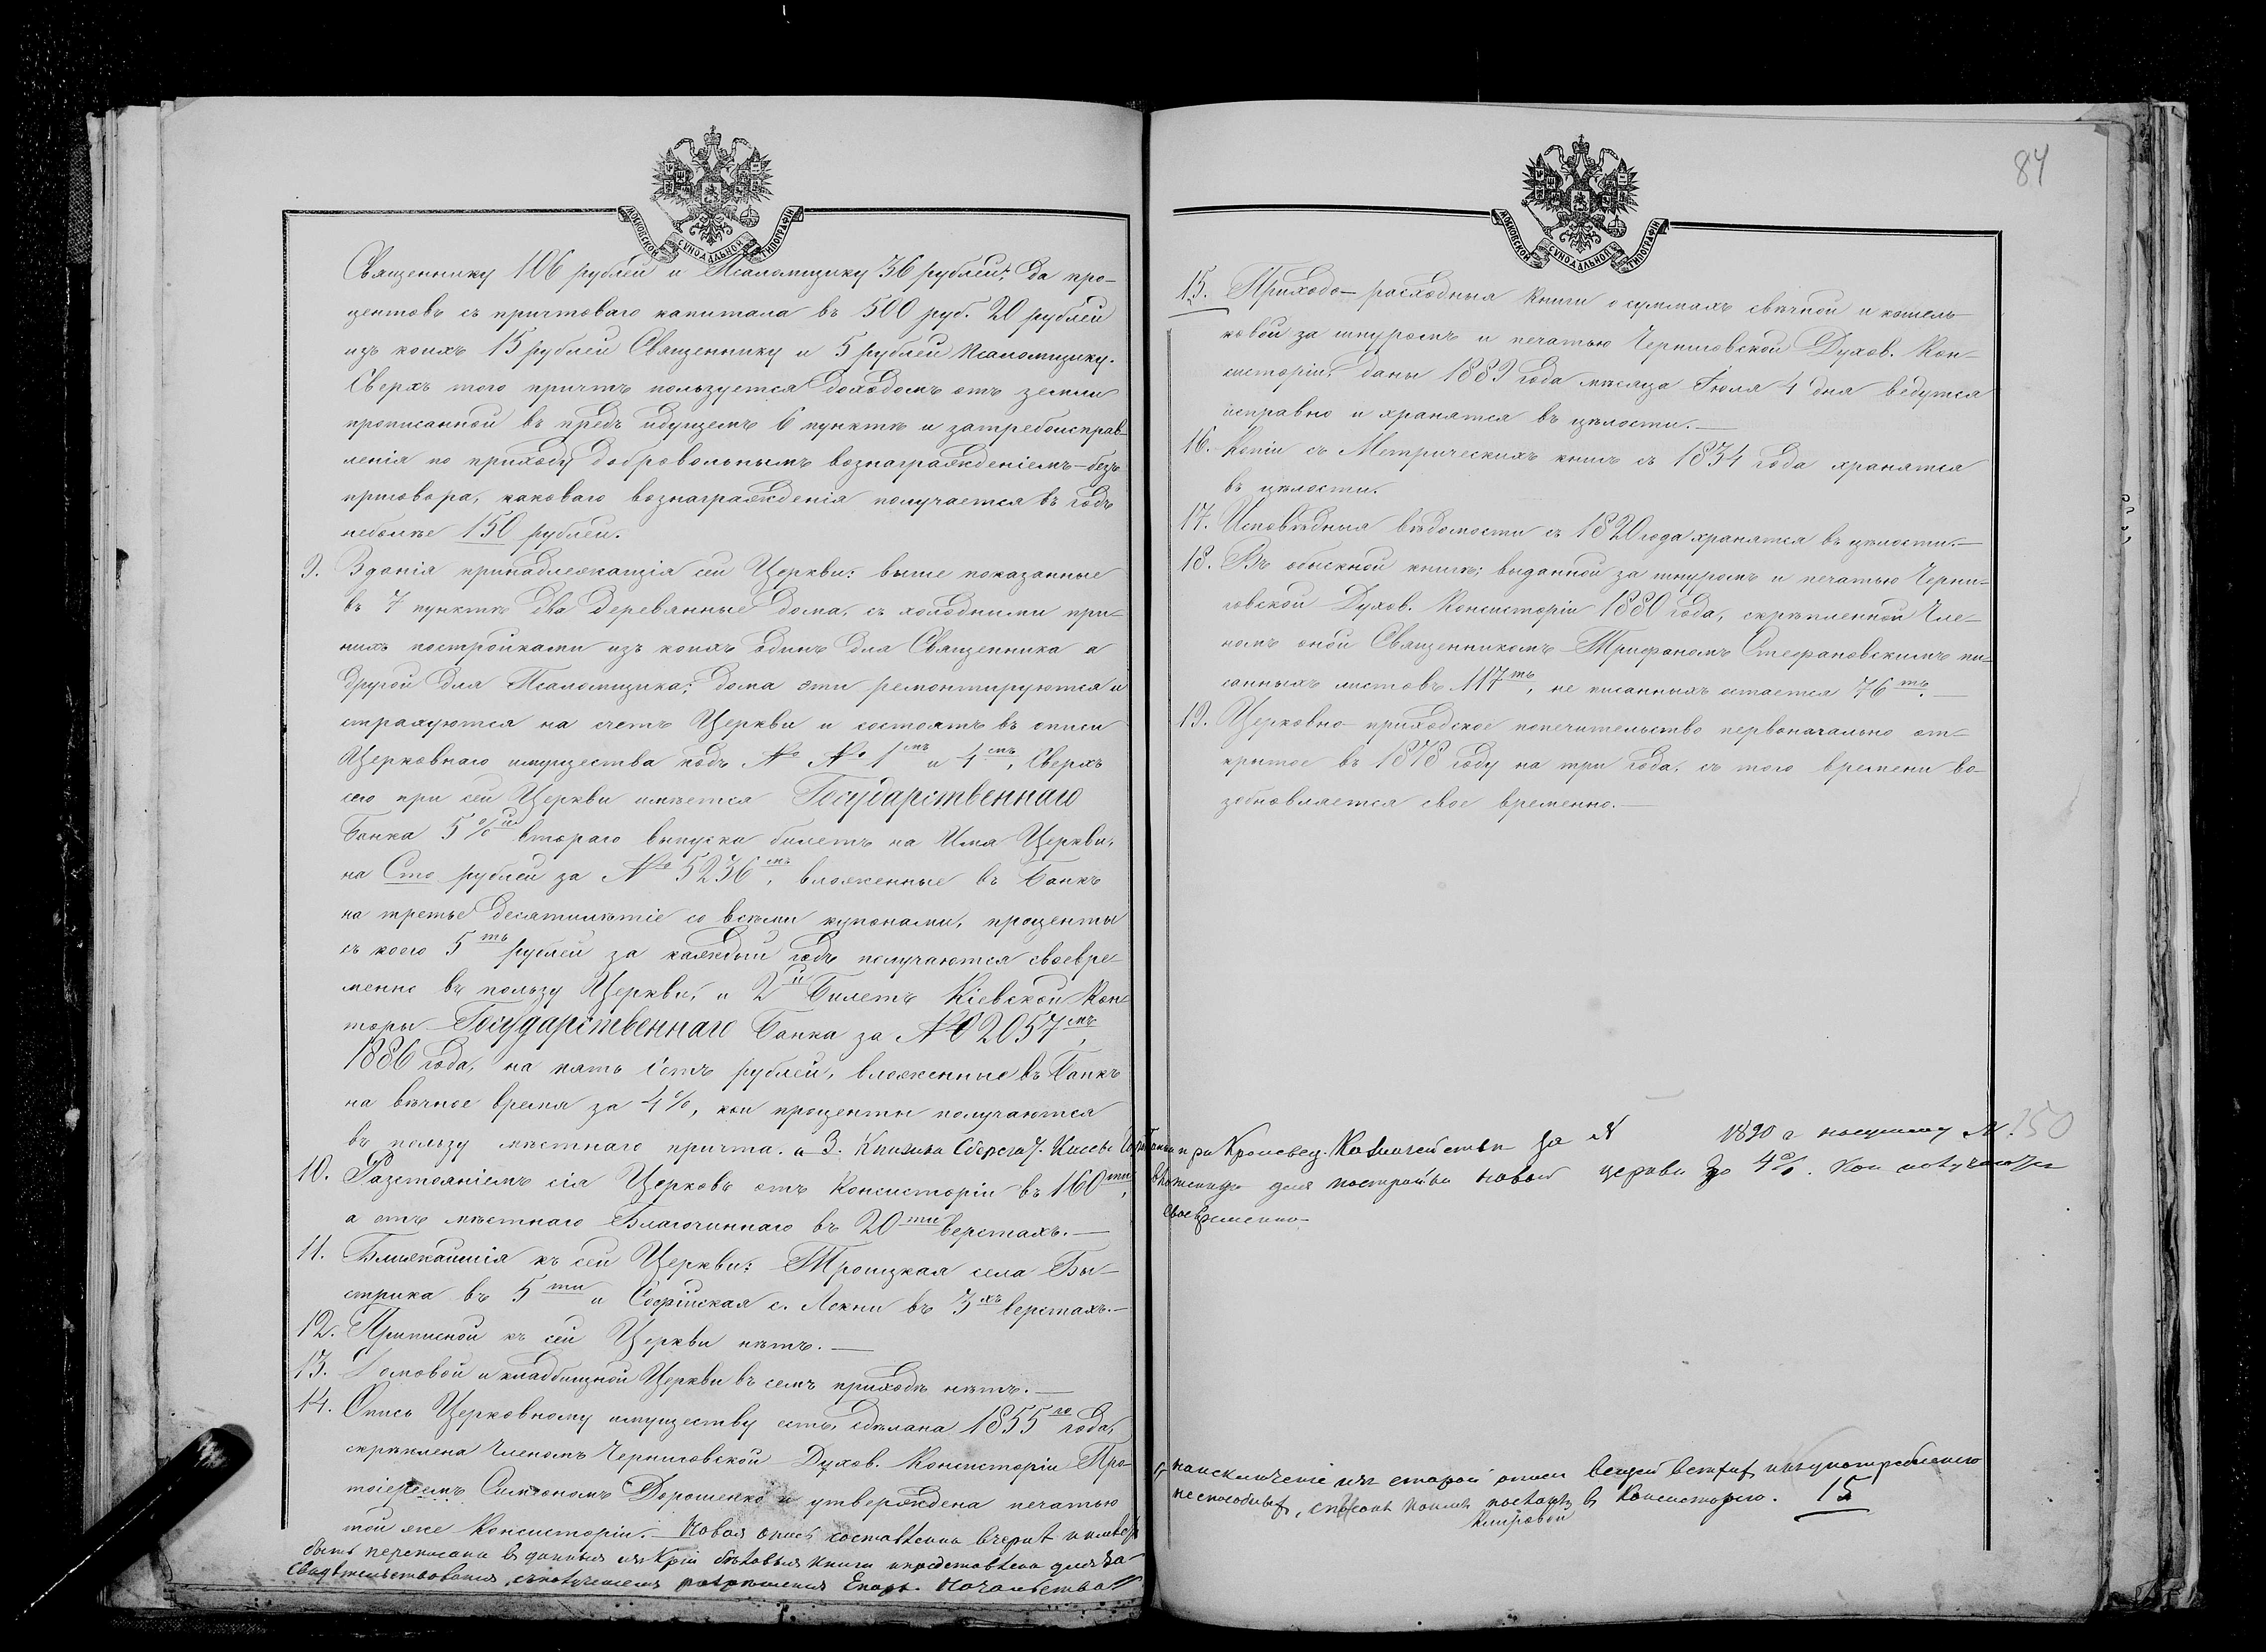 МОСКОВСКОЙ СУНОДАЛЬНОЙ ТИПОГРАФІИ
Священнику 106 рублей и Псаломщику 36 рублей; да про-
центовъ съ причтоваго капитала въ 500 руб. 20 рублей
изъ коихъ 15 рублей Священнику и 5 рублей Псаломщику.
Сверхъ того причтъ пользуется доходомъ отъ земли
прописанной въ предъ идущемъ 6 пунктѣ и за требоисправ-
ленія по приходу добровольнымъ вознагражденіемъ – безъ
приговора, каковаго вознагражденія получается въ годъ
неболѣе 150 рублей.
9. Зданія принадлежащія сей Церкви: выше показанные
въ 7 пунктѣ два деревянные дома, съ холодными при-
нихъ постройками изъ коихъ одинъ для Священника а
другой для Псаломщика; дома эти ремонтируются и
страхуются на счетъ Церкви и состоятъ въ описи
Церковнаго имущества подъ №№ 1мъ и 4мъ, Сверхъ
сего при сей Церкви имѣется Государственнаго
Банка 5%й втораго выпуска билетъ на Имя Церкви,
на Сто рублей за № 5236мъ, вложенные въ Банкъ
на третье десятилѣтіе со всѣми купонами, проценты
съ коего 5ть рублей за каждый годъ получаются своевре-
менно въ пользу Церкви, и 2й Билетъ Кіевской Кон-
торы Государственнаго Банка за № 2057мъ,
1886 года, на пять сотъ рублей, вложенные въ Банкъ
на вѣчное время за 4%, кои проценты получаются
въ пользу мѣстнаго причта. а 3. Книжка Сберегат. Кассы
10. Разстояніемъ сія Церковь отъ Консисторіи въ 160ти,
а отъ мѣстнаго Благочиннаго въ 20ти верстахъ. —
11. Ближайшія къ сей Церкви: Троицкая села Бы-
стрика въ 5ти и Софійская с. Локни въ 3хъ верстахъ. —
12. Приписной къ сей Церкви нѣтъ. —
13. Домовой и кладбищной Церкви въ семъ приходѣ нѣтъ. —
14. Опись Церковному имуществу есть, сдѣлана 1855го года,
скрѣплена Членомъ Черниговской Духов. Консисторіи Про-
тоіереемъ Симеономъ Дорошенко и утверждена печатью
той же Консисторіи. — Новая опись составлена вчернѣ и имѣетъ
быть переписана въ данныя изъ книги и представлена для за-
свидѣтельствованія, съ полученіемъ разрѣшенія Епарх. Начальства
84
МОСКОВСКОЙ СУНОДАЛЬНОЙ ТИПОГРАФІИ
15. Приходо-расходныя книги о суммахъ свѣчной и кошель-
ковой за шнуромъ и печатью Черниговской Духов. Кон-
систоріи, даны 1889 года мѣсяца Іюля 4 дня ведутся
исправно и хранятся въ цѣлости. —
16. Копіи съ Метрическихъ книгъ съ 1834 года хранятся
въ цѣлости.
17. Исповѣдныя вѣдомости съ 1820 года хранятся въ цѣлости. —
18. Въ обыскной книгѣ; выданной за шнуромъ и печатью Черни-
говской Духов. Консисторіи 1880 года, скрѣпленной Чле-
номъ оной Священникомъ Трифономъ Стефановскимъ пи-
санныхъ листовъ 117ть, не писанныхъ остается 76ть. —
19. Церковно-приходское попечительство первоначально от-
крытое въ 1878 году на три года, съ того времени во-
зобновляется свое временно. —
при Кролевец. Казначействѣ за № 1890 г 250
вложенную для постройки новой церкви по 4%. кои получаются
своевременно
на исключеніе изъ старой описи вещей къ употребленію
неспособныхъ, въ Консисторію. 15